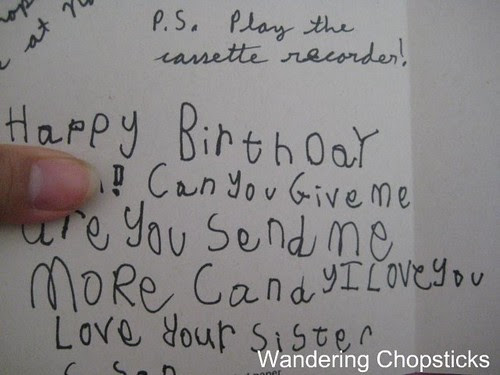 at
P.S. Play the
cassette recorder!
Happy BirthDay
! Can you Give me
are you send me
MoRe Candy I Love you
Love your sister
Wandering Chopsticks